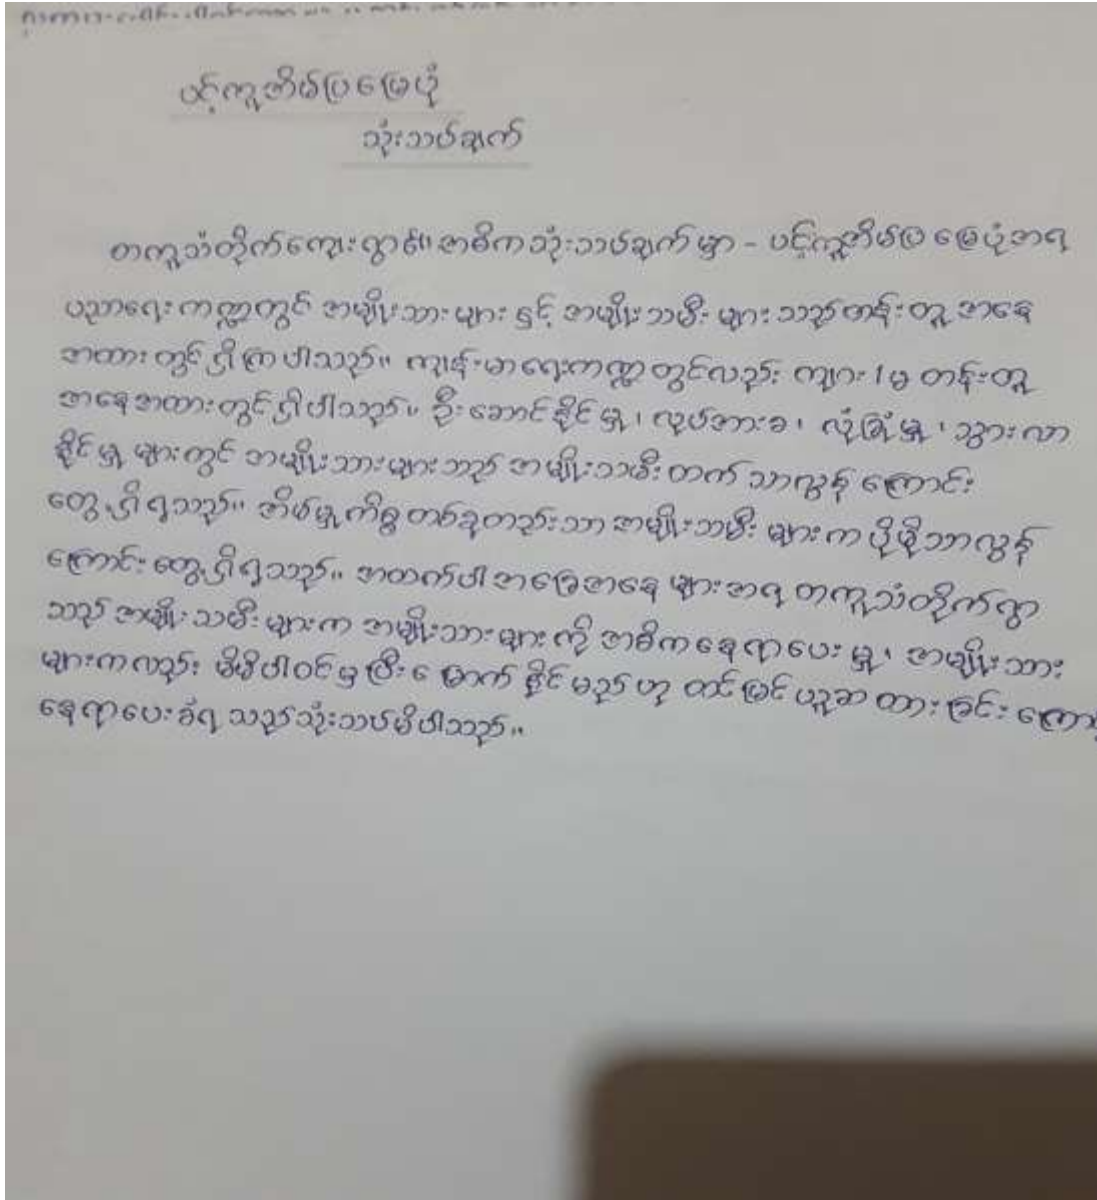 ပင့်ကူအိမ်ပြမြေပုံ
သုံးသပ်ချက်
တကူသံတိုက်ကျေးရွာ၏ အဓိကသုံးသပ်ချက်မှာ - ပင့်ကူအိမ်ပြမြေပုံအရ
ပညာရေးကဏ္ဍတွင် အမျိုးသားများ နှင့် အမျိုးသမီးများသည်တန်းတူ အနေ
အထားတွင်ရှိကြပါသည်။ ကျန်းမာရေးကဏ္ဍတွင်လည်း ကျား/မ တန်းတူ
အနေအထားတွင်ရှိပါသည်။ ဦးဆောင်နိုင်မှု၊ လုပ်အားခ၊ လုံခြုံမှု၊ သွားလာ
နိုင်မှုများတွင် အမျိုးသားများသည် အမျိုးသမီးတက် သာလွန်ကြောင်း
တွေ့ရှိရသည်။ အိမ်မှုကိစ္စတစ်ခုတည်းသာ အမျိုးသမီးများက ပိုမိုသာလွန်
ကြောင်းတွေ့ရှိရသည်။ အထက်ပါအခြေအနေများအရ တကူသံတိုက်ရွာ
သည် အမျိုးသမီးများက အမျိုးသားများကို အဓိကနေရာပေးမှု၊ အမျိုးသား
များကလည်း မိမိပါဝင်မှ ပြီးမြောက်နိုင်မည်ဟု ထင်မြင်ယူဆထားခြင်း
နေရာပေးခံရသည်သုံးသပ်မိပါသည်။